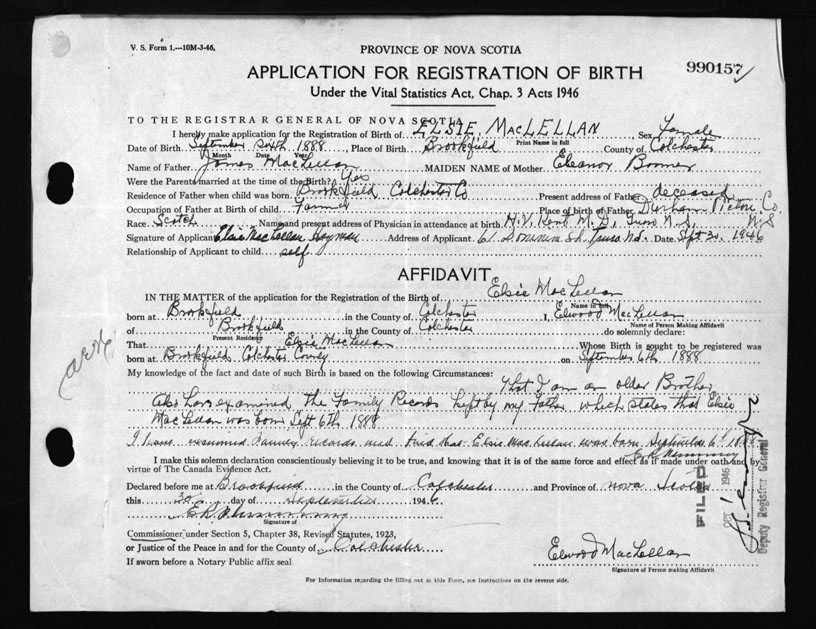 V. S. Form 1.—10M-3-46.
PROVINCE OF NOVA SCOTIA
APPLICATION FOR REGISTRATION OF BIRTH
990157
Under the Vital Statistics Act, Chap. 3 Acts 1946
TO THE REGISTRAR GENERAL OF NOVA SCOTIA
I hereby make application for the Registration of Birth of ELSIE MACLELLAN Sex Female
Print Name in full
Date of Birth September sixth 1888 Place of Birth Brookfield County of Colchester
Month Date Year
Name of Father James MacLellan MAIDEN NAME of Mother Eleanor Boomer
Were the Parents married at the time of the Birth? Yes
Residence of Father when child was born Brookfield Colchester Co Present address of Father deceased
Occupation of Father at Birth of child Farmer Place of birth of Father Durham Pictou Co. N.S
Race Scotch Name and present address of Physician in attendance at birth H.V. Kent M.D, Truro N.S.
Signature of Applicant Elsie MacLellan Hayman Address of Applicant 61 Dominion St. Truro Date Sept 3, 1946
Relationship of Applicant to child self
AFFIDAVIT
IN THE MATTER of the application for the Registration of Birth of Elsie MacLellan
Name in full
born at Brookfield in the County of Colchester I, Elwood MacLellan
Name of Person Making Affidavit
of Brookfield in the County of Colchester do solemnly declare:
Present Residence
That Elsie MacLellan Whose Birth is sought to be registered was
born at Brookfield Colchester County on September 6th 1888
My knowledge of the fact and date of such Birth is based on the following Circumstances:
That I am an older Brother
Also have examined the Family Records kept by my Father which states that Elsie
MacLellan was born Sept 6th 1888
I have examined Family records and find that Elsie MacLellan was born September 6th 1888
I make this solemn declaration conscientiously believing it to be true, and knowing that it is of the same force and effect as if made under oath and by
virtue of The Canada Evidence Act.
Declared before me at Brookfield in the County of Colchester and Province of Nova Scotia
this 30 day of September 1946
Signature of
Commissioner under Section 5, Chapter 38, Revised Statutes, 1923,
or Justice of the Peace in and for the County of Colchester
If sworn before a Notary Public affix seal
Elwood MacLellan
Signature of Person making Affidavit
For Information regarding the filling out of this Form, see Instructions on the reverse side.
FILED
1946
Deputy Registrar General